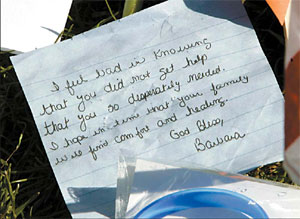 I feel bad in knowing
that you did not get help
that you so desperately needed.
I hope in time that your family
will find comfort and healing.
God Bless,
Barbara